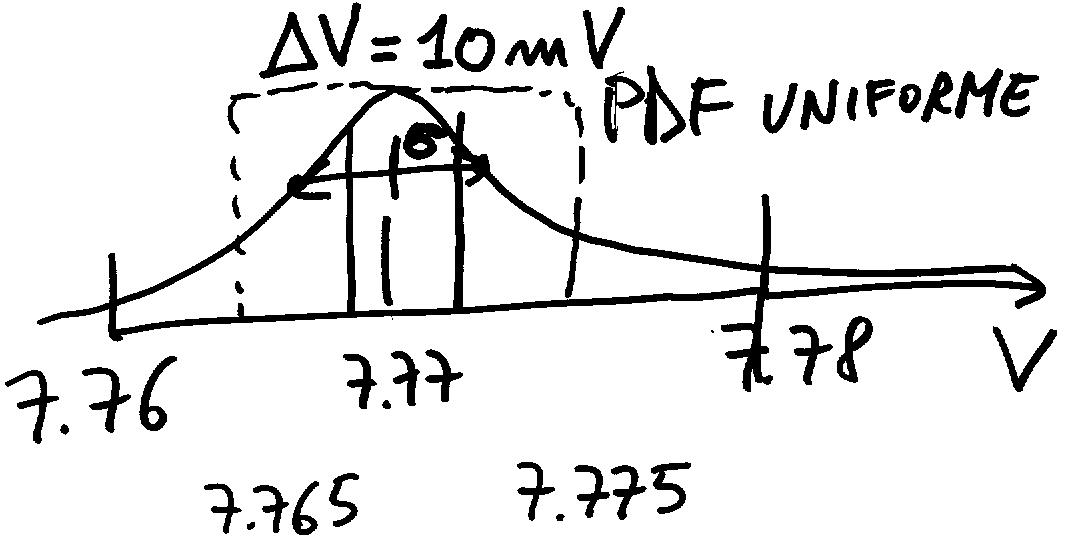 ΔV = 10 mV
PDF UNIFORME
σ
7.76
7.77
7.78
V
7.765
7.775